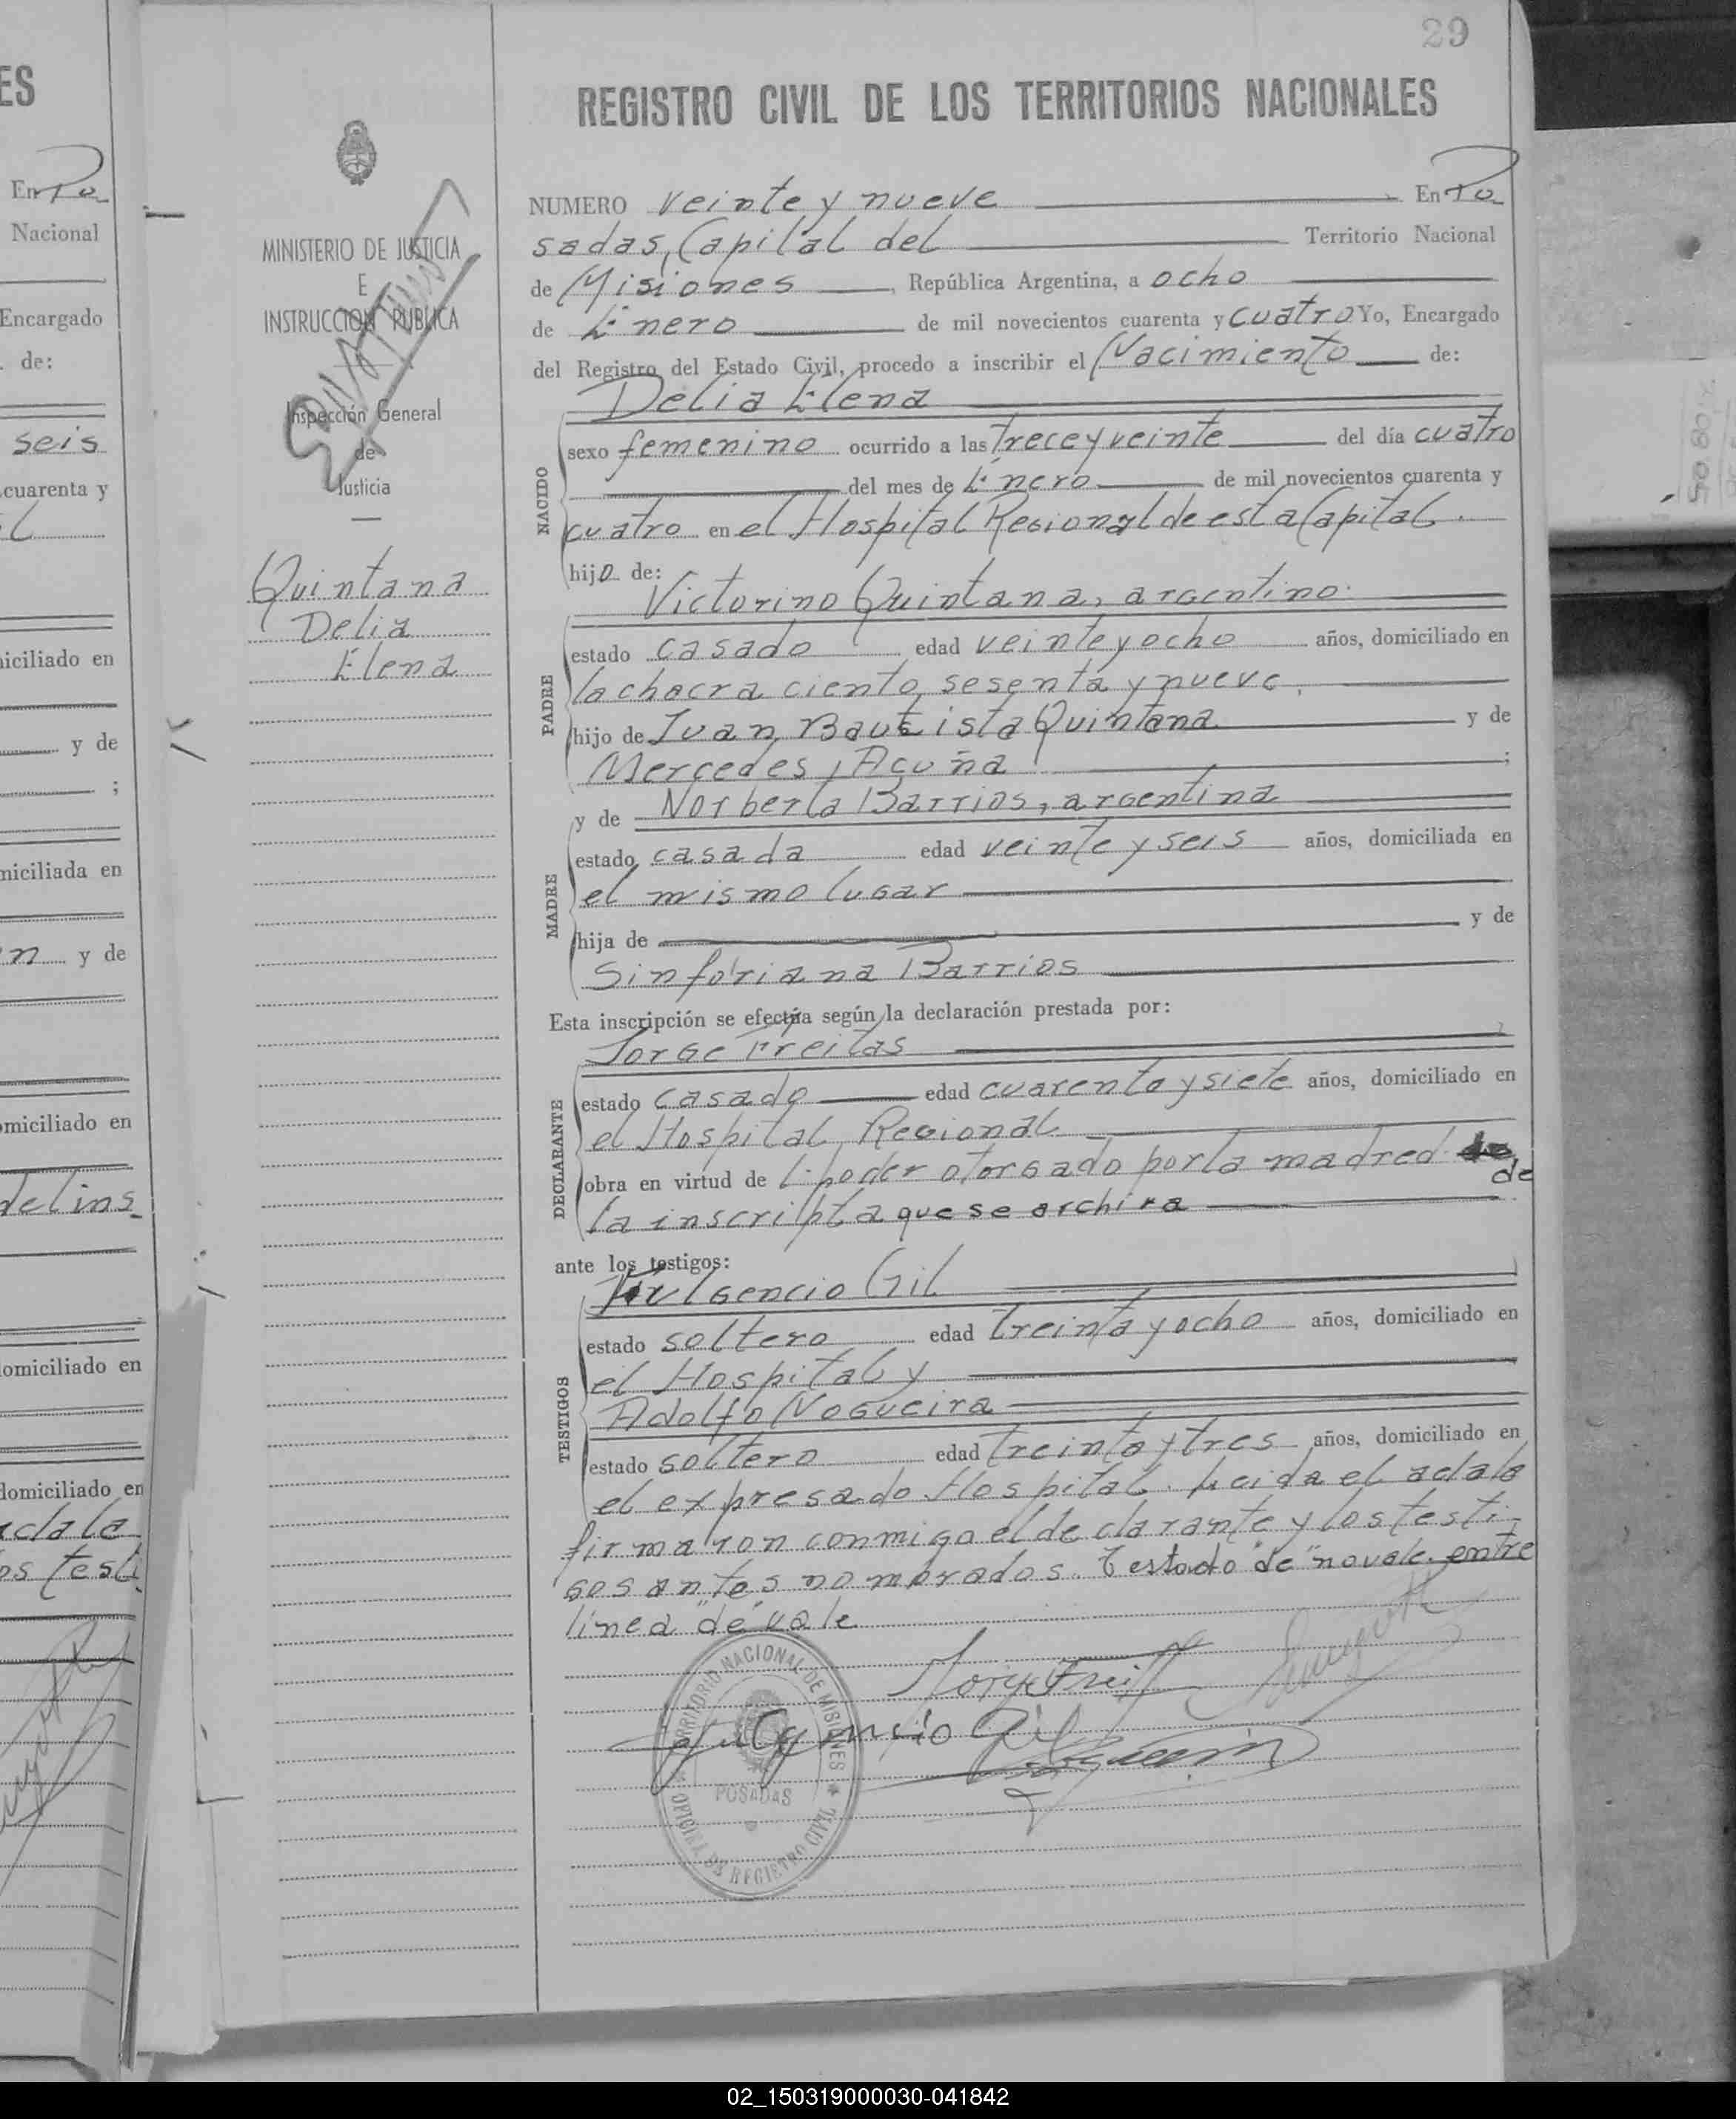 29
REGISTRO CIVIL DE LOS TERRITORIOS NACIONALES
NUMERO veinte y nueve En Po
sadas, Capital del Territorio Nacional
de Misiones, República Argentina, a ocho
de Enero de mil novecientos cuarenta y cuatro Yo, Encargado
del Registro del Estado Civil, procedo a inscribir el Nacimiento de:
Delia Elena
NACIDO
sexo femenino ocurrido a las trece y veinte del día cuatro
del mes de Enero de mil novecientos cuarenta y
cuatro en el Hospital Regional de esta Capital.
hijo de:
Victorino Quintana, argentino.
PADRE
estado casado edad veinte y ocho años, domiciliado en
la chacra ciento sesenta y nueve.
hijo de Juan Bautista Quintana y de
Mercedes Acuña ;
y de Norberta Barrios, argentina
MADRE
estado casada edad veinte y seis años, domiciliada en
el mismo lugar
hija de y de
Sinforiana Barrios
Esta inscripción se efectúa según la declaración prestada por:
Jorge Freitas
DECLARANTE
estado casado edad cuarenta y siete años, domiciliado en
el Hospital Regional
obra en virtud de poder otorgado por la madre de
de
la inscripta que se archiva
ante los testigos:
Fulgencio Gil
TESTIGOS
estado soltero edad treinta y ocho años, domiciliado en
el Hospital y
Adolfo Nogueira
estado soltero edad treinta y tres años, domiciliado en
el expresado Hospital. Leida el acta la
firmaron conmigo el declarante y los testi-
gos antes nombrados. Testado "de" no vale. entre
linea "de" vale
Jorge Freitas
Fulgencio Gil
TERRITORIO NACIONAL DE MISIONES
POSADAS
OFICINA DE REGISTRO CIVIL
MINISTERIO DE JUSTICIA
E
INSTRUCCION PUBLICA
Inspección General
de
Justicia
Quintana
Delia
Elena
ES
En Po
Nacional
Encargado
de:
seis
cuarenta y
L
iciliado en
y de
;
miciliada en
n y de
omiciliado en
delins
domiciliado en
domiciliado en
acta la
os testi
02_150319000030-041842